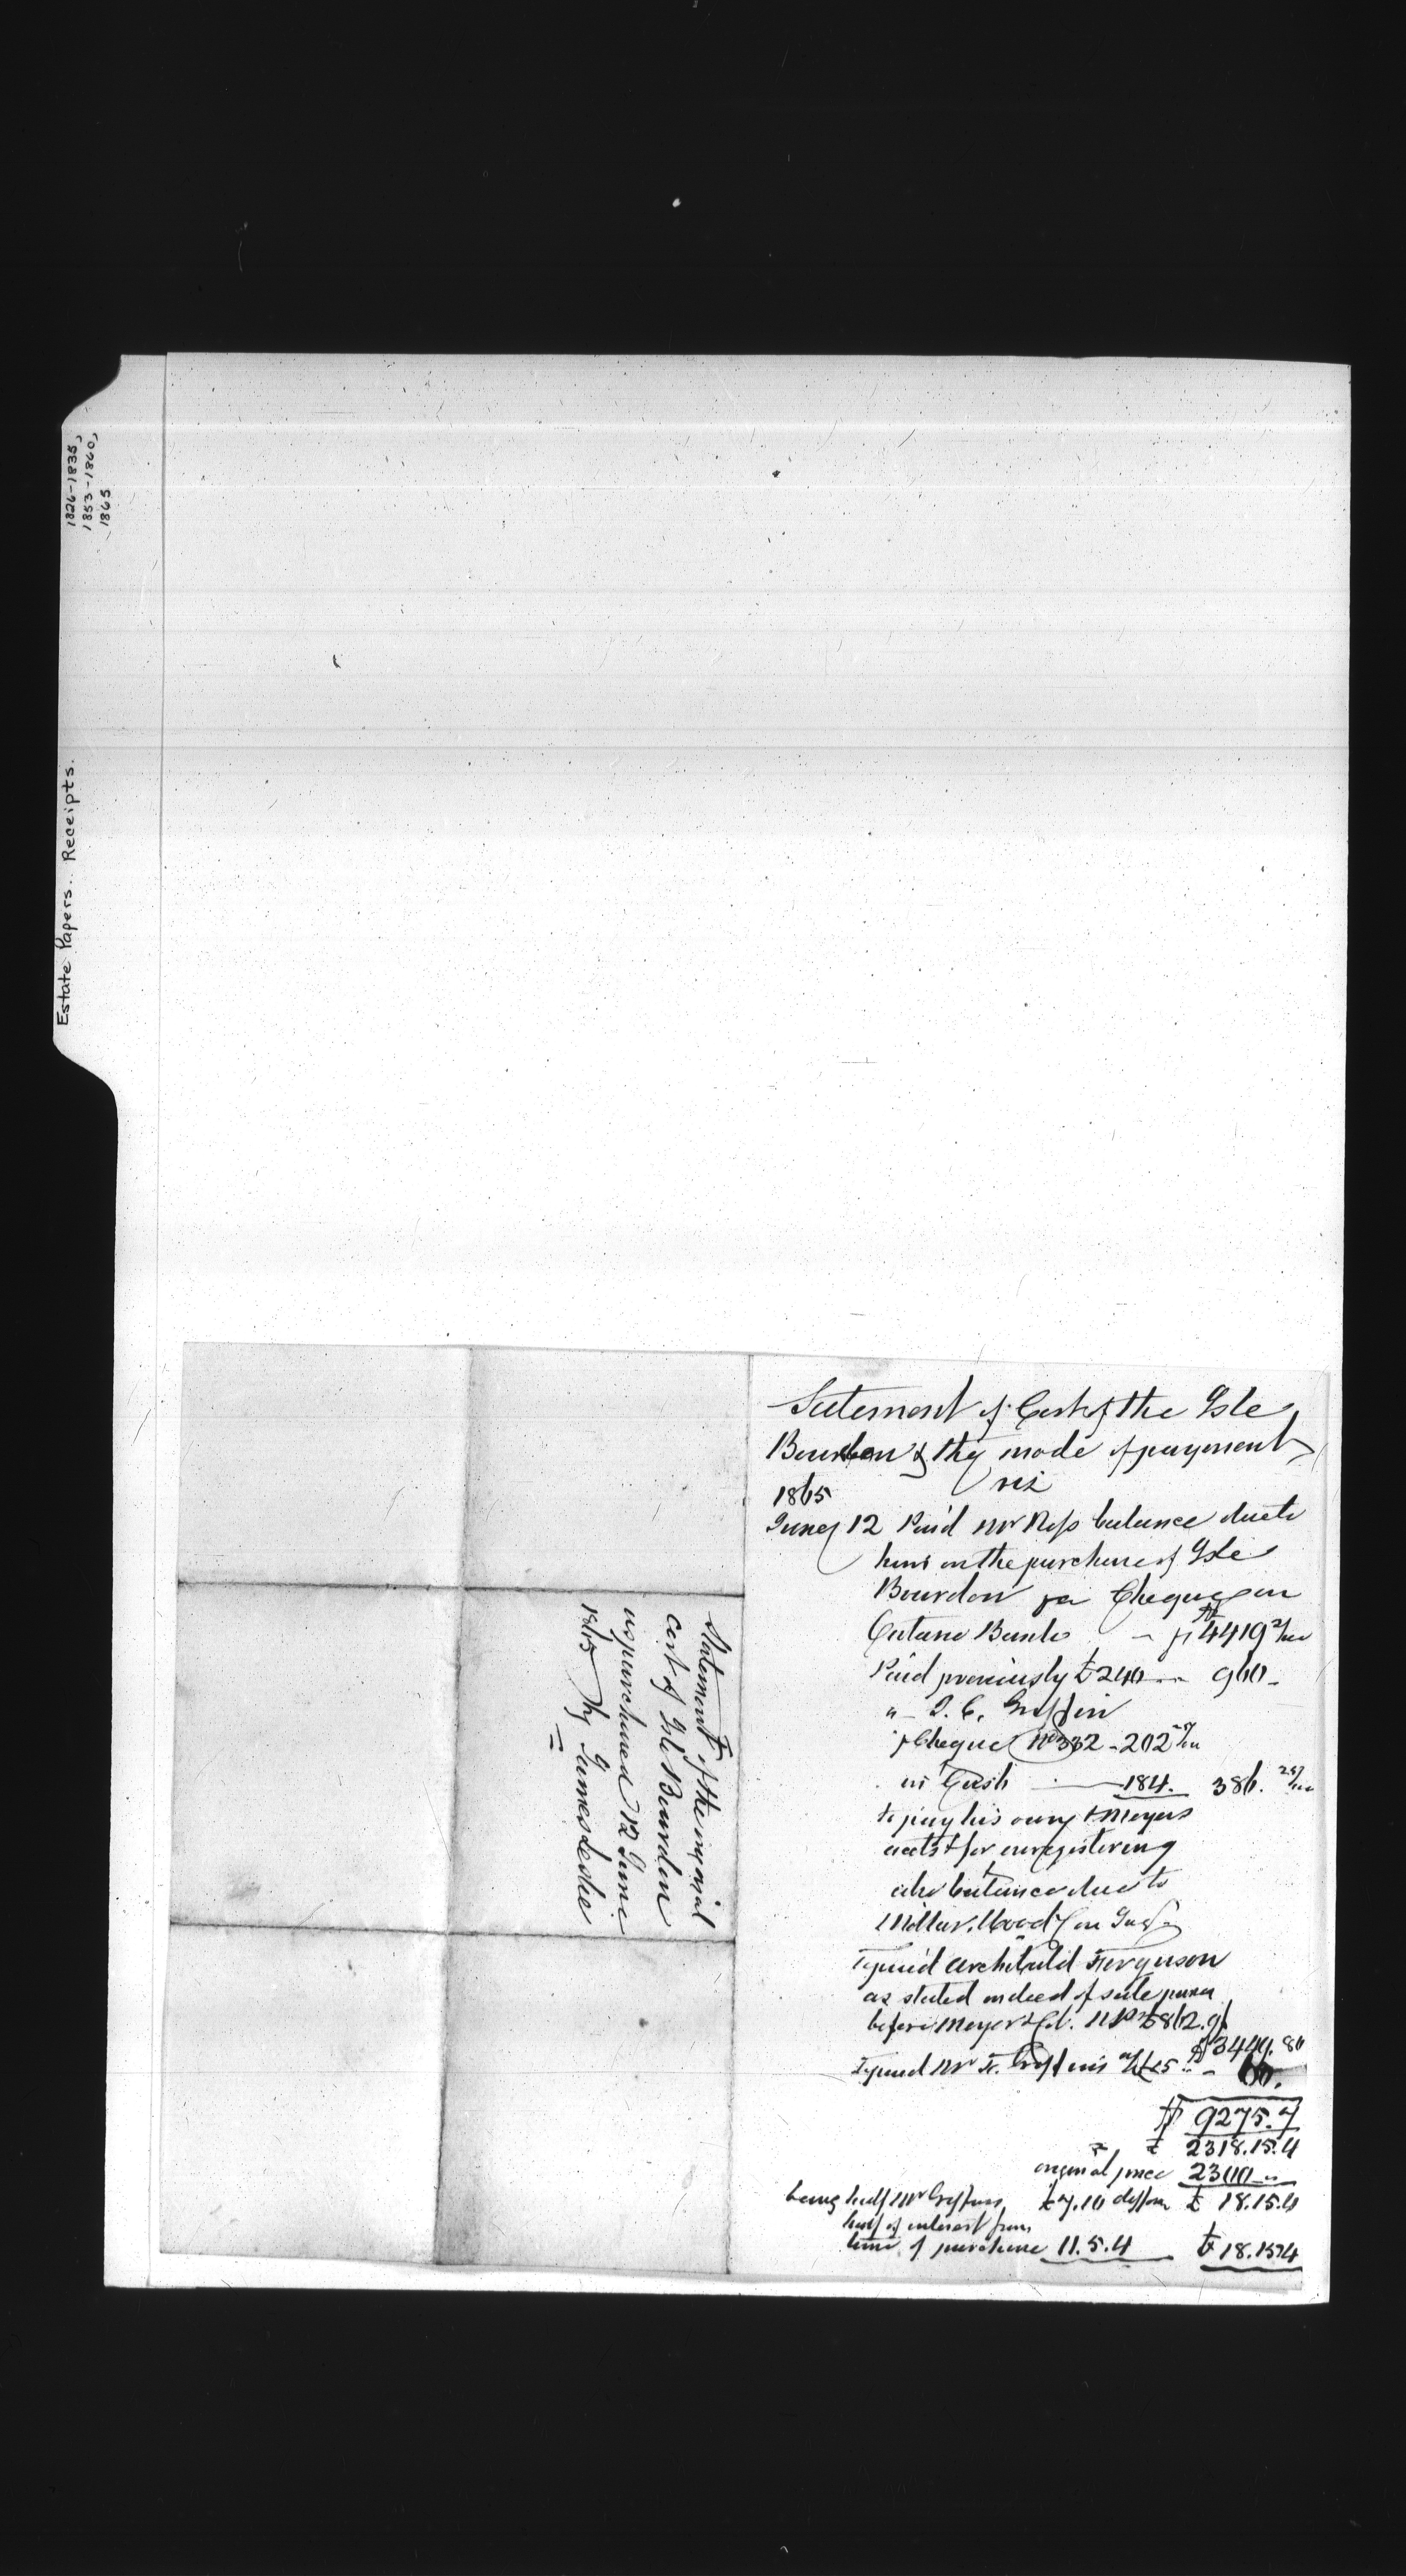 1826-1835,
1853-1860,
1865
Estate Papers. Receipts.
Statement of Cost of the Isle
Bourdon & the mode of payment
viz
1865
June 12 Paid Mr Ross balance due to
him on the purchase of Isle
Bourdon per Cheque on
Ontario Bank $4419
Paid previously £240 960
J. C. Griffin
Cheque No 332 - 202
in Cash 184. 386.
to pay his own & Meyers
accts & for enregistering
also balance due to
Millar, Wood
Archibald Ferguson
as stated in deed of sale
before Meyer £862.9
$3449.80
Mr F. Griffin's £15 60.
$ 9275.7
£ 2318.15.4
original price 2300
being half Mr Griffins £7.10 £ 18.15.4
half of interest from
time of purchase 11.5.4 £18.15.4
Statement of the original
cost of Isle Bourdon
as purchased 12 June
1865 by James Leslie